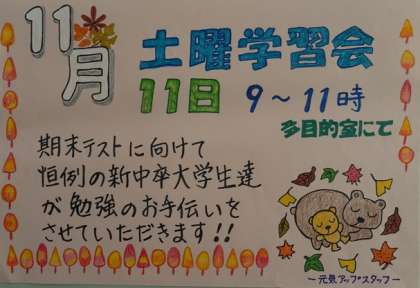 11月
土曜学習会
11日 9～11時
多目的室にて
期末テストに向けて
恒例の新中卒大学生達
が勉強のお手伝いを
させていただきます!!
～元気アップスタッフ～